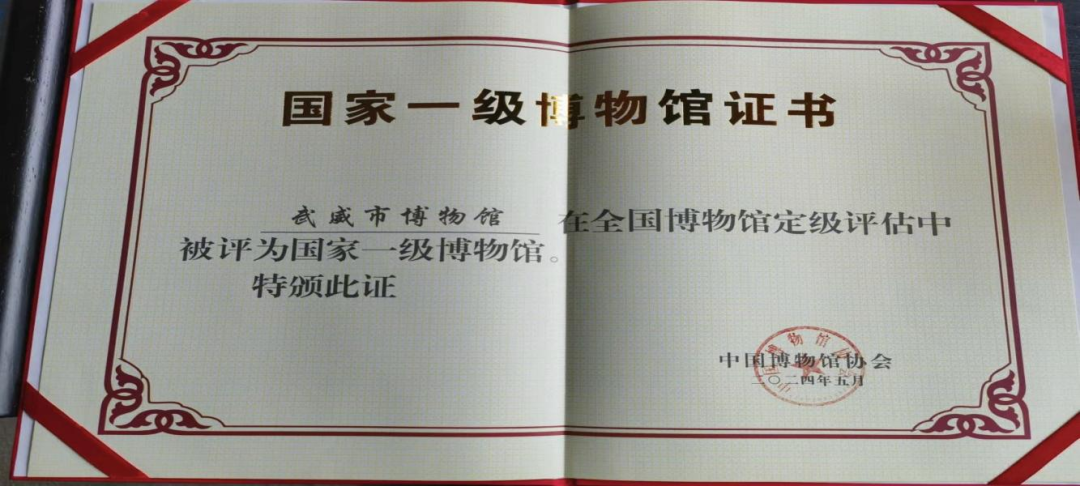 国家一级博物馆证书
武威市博物馆 在全国博物馆定级评估中
被评为国家一级博物馆。
特颁此证
中国博物馆协会
二〇二四年五月